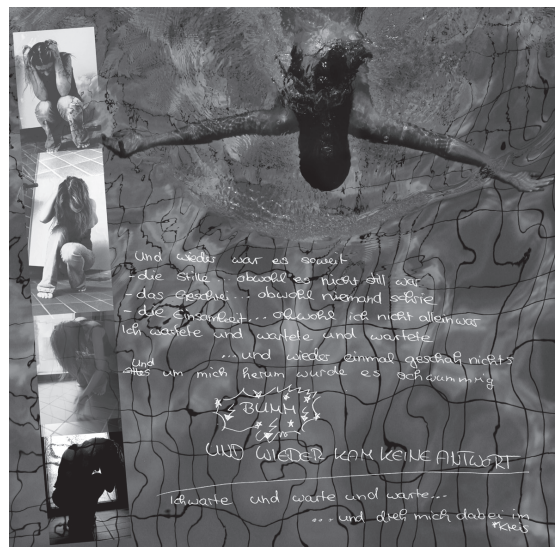 Und wieder war es soweit
- die Stille obwohl es nicht still war
- das Geschrei... obwohl niemand schrie
- die Einsamkeit... obwohl ich nicht allein war
Ich wartete und wartete und wartete
...und wieder einmal geschah nichts
Und
alles um mich herum wurde es schwummrig
BUMM
UND WIEDER KAM KEINE ANTWORT
Ich warte und warte und warte...
... und dreh mich dabei im
Kreis